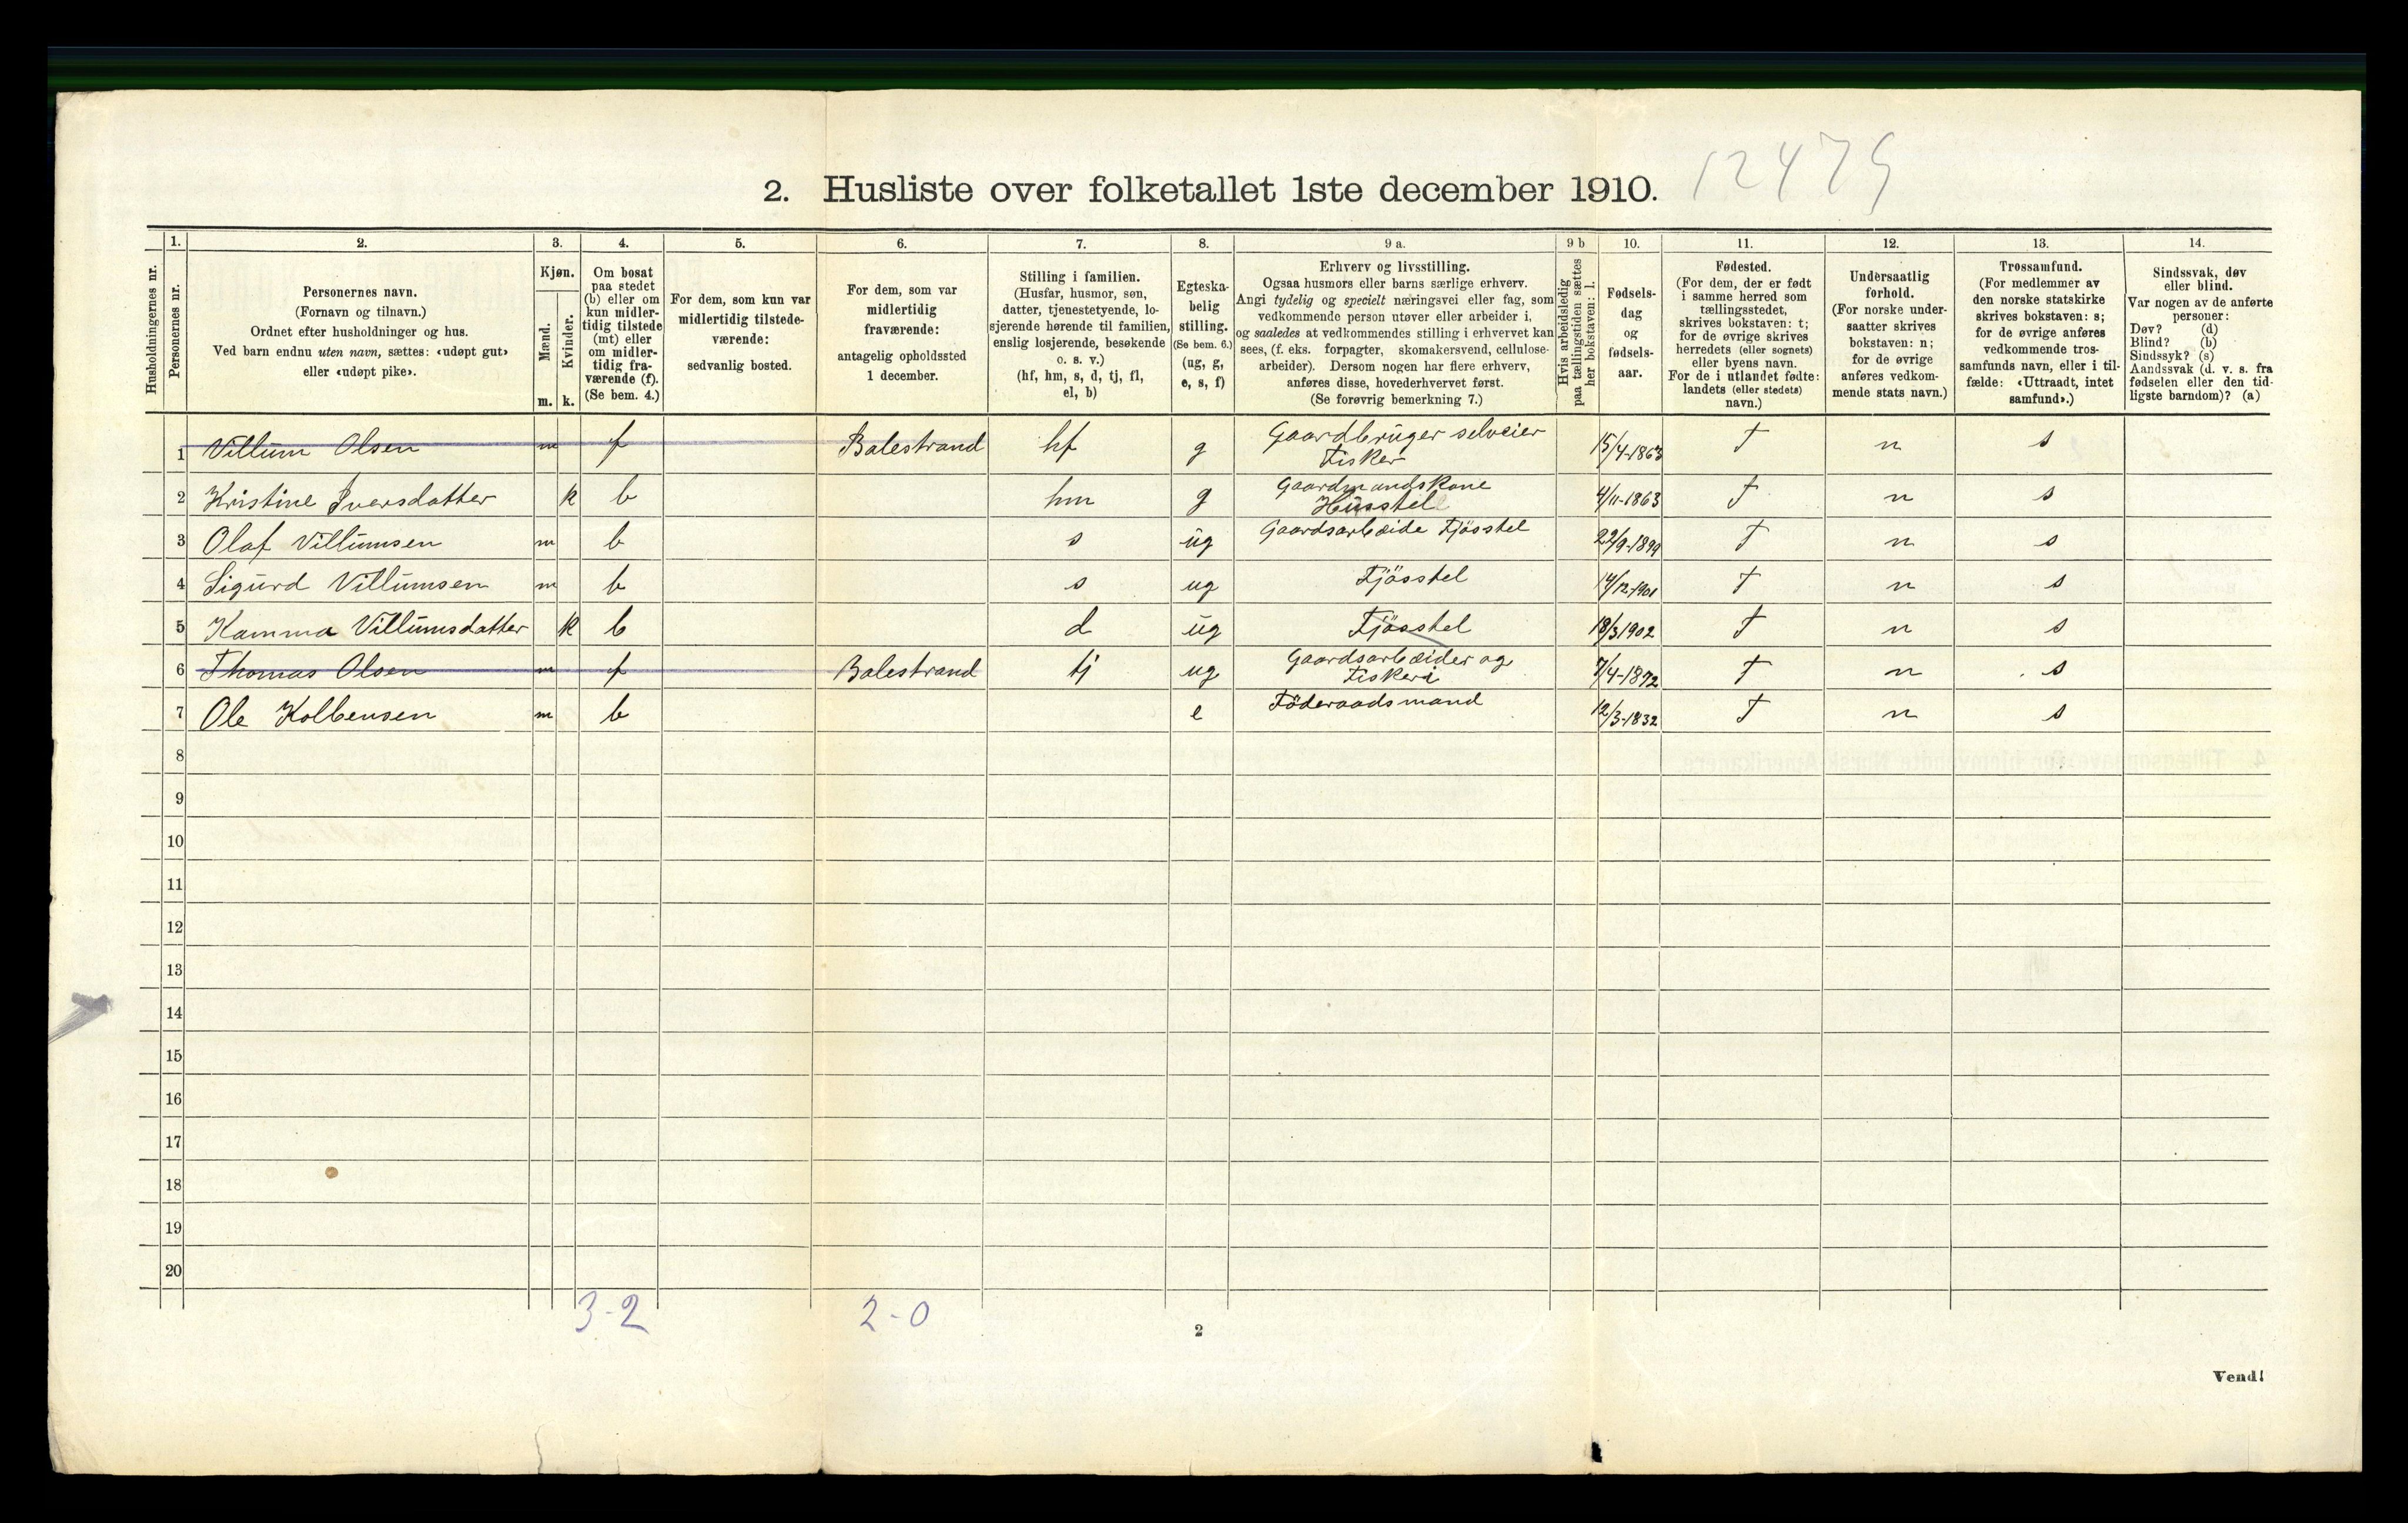 2. Husliste over folketallet 1ste december 1910. 12479
Husholdningernes nr.
1.
Personernes nr.
2.
Personernes navn.
(Fornavn og tilnavn.)
Ordnet efter husholdninger og hus.
Ved barn endnu uten navn, sættes: «udøpt gut»
eller «udøpt pike».
3.
Kjøn.
Mænd.
Kvinder.
m. k.
4.
Om bosat
paa stedet
(b) eller om
kun midler-
tidig tilstede
(mt) eller
om midler-
tidig fra-
værende (f).
(Se bem. 4.)
5.
For dem, som kun var
midlertidig tilstede-
værende:
sedvanlig bosted.
6.
For dem, som var
midlertidig
fraværende:
antagelig opholdssted
1 december.
7.
Stilling i familien.
(Husfar, husmor, søn,
datter, tjenestetyende, lo-
sjerende hørende til familien,
enslig losjerende, besøkende
o. s. v.)
(hf, hm, s, d, tj, fl,
el, b)
8.
Egteska-
belig
stilling.
(Se bem. 6.)
(ug, g,
e, s, f)
9 a.
Erhverv og livsstilling.
Ogsaa husmors eller barns særlige erhverv.
Angi tydelig og specielt næringsvei eller fag, som
vedkommende person utøver eller arbeider i,
og saaledes at vedkommendes stilling i erhvervet kan
sees, (f. eks. forpagter, skomakersvend, cellulose-
arbeider). Dersom nogen har flere erhverv,
anføres disse, hovederhvervet først.
(Se forøvrig bemerkning 7.)
9 b
Hvis arbeidsledig
paa tællingstiden sættes
her bokstaven: l.
10.
Fødsels-
dag
og
fødsels-
aar.
11.
Fødested.
(For dem, der er født
i samme herred som
tællingsstedet,
skrives bokstaven: t;
for de øvrige skrives
herredets (eller sognets)
eller byens navn.
For de i utlandet fødte:
landets (eller stedets)
navn.)
12.
Undersaatlig
forhold.
(For norske under-
saatter skrives
bokstaven: n;
for de øvrige
anføres vedkom-
mende stats navn.)
13.
Trossamfund.
(For medlemmer av
den norske statskirke
skrives bokstaven: s;
for de øvrige anføres
vedkommende tros-
samfunds navn, eller i til-
fælde: «Uttraadt, intet
samfund».)
14.
Sindssvak, døv
eller blind.
Var nogen av de anførte
personer:
Døv? (d)
Blind? (b)
Sindssyk? (s)
Aandssvak (d. v. s. fra
fødselen eller den tid-
ligste barndom)? (a)
1 Villum Olsen m f Balestrand hf g Gaardbruger selveier Fisker 15/4-1863 T n s
2 Kristine Iversdatter k b hm g Gaardmandskone Husstell 4/11-1863 T n s
3 Olaf Villumsen m b s ug Gaardsarbeide Fjösstel 22/9-1899 T n s
4 Sigurd Villumsen m b s ug Fjösstel 14/12-1901 T n s
5 Kamma Villumsdatter k b d ug Fjösstel 18/3 1902 T n s
6 Thomas Olsen m f Balestrand tj ug Gaardsarbeider og Fiskeri 7/4-1872 T n s
7 Ole Kolbensen m b e Föderaadsmand 12/3-1832 T n s
8
9
10
11
12
13
14
15
16
17
18
19
20
3-2 2-0
2
Vend!